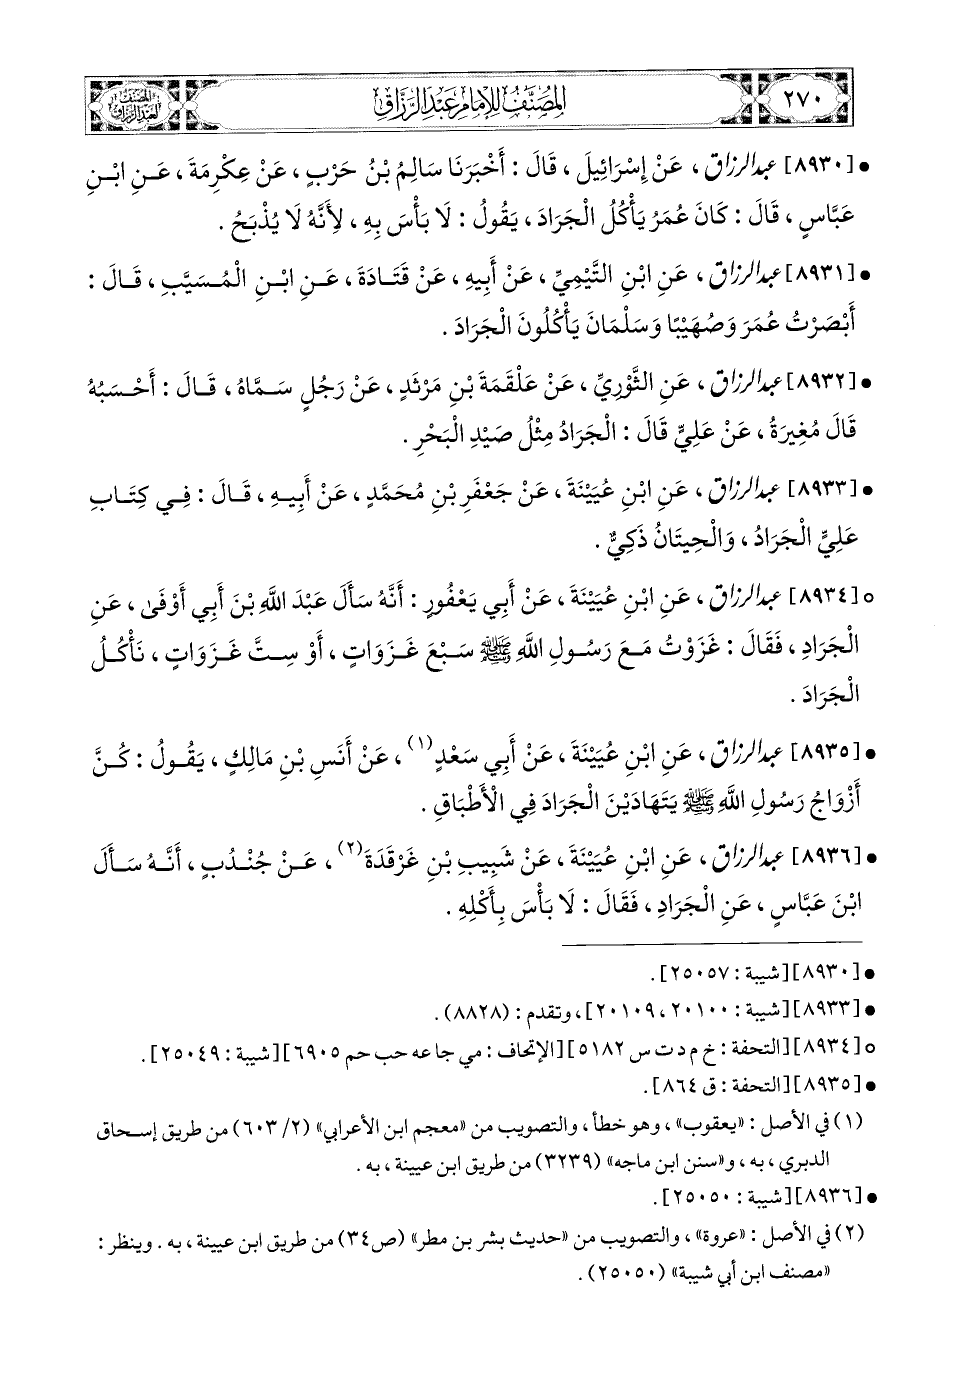 ٢٧٠
المُصَنَّفُ لِلإِمَامِ عَبْدِ الرَّزَّاقِ
المصنف
لعبد الرزاق
• [٨٩٣٠] عبد الرزاق ، عَنْ إِسْرَائِيلَ ، قَالَ : أَخْبَرَنَا سَالِمُ بْنُ حَرْبٍ ، عَنْ عِكْرِمَةَ ، عَنِ ابْنِ
عَبَّاسٍ ، قَالَ : كَانَ عُمَرُ يَأْكُلُ الْجَرَادَ ، يَقُولُ : لَا بَأْسَ بِهِ ، لِأَنَّهُ لَا يُذْبَحُ .
• [٨٩٣١] عبد الرزاق ، عَنِ ابْنِ التَّيْمِيِّ ، عَنْ أَبِيهِ ، عَنْ قَتَادَةَ ، عَنِ ابْنِ الْمُسَيَّبِ ، قَالَ :
أَبْصَرْتُ عُمَرَ وَصُهَيْبًا وَسَلْمَانَ يَأْكُلُونَ الْجَرَادَ .
• [٨٩٣٢] عبد الرزاق ، عَنِ الثَّوْرِيِّ ، عَنْ عَلْقَمَةَ بْنِ مَرْثَدٍ ، عَنْ رَجُلٍ سَمَّاهُ ، قَالَ : أَحْسَبُهُ
قَالَ مُغِيرَةُ ، عَنْ عَلِيٍّ قَالَ : الْجَرَادُ مِثْلُ صَيْدِ الْبَحْرِ .
• [٨٩٣٣] عبد الرزاق ، عَنِ ابْنِ عُيَيْنَةَ ، عَنْ جَعْفَرِ بْنِ مُحَمَّدٍ ، عَنْ أَبِيهِ ، قَالَ : فِي كِتَابِ
عَلِيٍّ الْجَرَادُ ، وَالْحِيتَانُ ذَكِيٌّ .
○ [٨٩٣٤] عبد الرزاق ، عَنِ ابْنِ عُيَيْنَةَ ، عَنْ أَبِي يَعْفُورٍ : أَنَّهُ سَأَلَ عَبْدَ اللَّهِ بْنَ أَبِي أَوْفَى ، عَنِ
الْجَرَادِ ، فَقَالَ : غَزَوْتُ مَعَ رَسُولِ اللَّهِ ﷺ سَبْعَ غَزَوَاتٍ ، أَوْ سِتَّ غَزَوَاتٍ ، نَأْكُلُ
الْجَرَادَ .
• [٨٩٣٥] عبد الرزاق ، عَنِ ابْنِ عُيَيْنَةَ ، عَنْ أَبِي سَعْدٍ (١) ، عَنْ أَنَسِ بْنِ مَالِكٍ ، يَقُولُ : كُنَّ
أَزْوَاجُ رَسُولِ اللَّهِ ﷺ يَتَهَادَيْنَ الْجَرَادَ فِي الْأَطْبَاقِ .
• [٨٩٣٦] عبد الرزاق ، عَنِ ابْنِ عُيَيْنَةَ ، عَنْ شَبِيبِ بْنِ غَرْقَدَةَ (٢) ، عَنْ جُنْدُبٍ ، أَنَّهُ سَأَلَ
ابْنَ عَبَّاسٍ ، عَنِ الْجَرَادِ ، فَقَالَ : لَا بَأْسَ بِأَكْلِهِ .
• [٨٩٣٠] [شيبة : ٢٥٠٥٧] .
• [٨٩٣٣] [شيبة : ٢٠١٠٠ ، ٢٠١٠٩] ، وتقدم : (٨٨٢٨) .
○ [٨٩٣٤] [التحفة : خ م د ت س ٥١٨٢] [الإتحاف : مي جا عه حب حم ٦٩٠٥] [شيبة : ٢٥٠٤٩] .
• [٨٩٣٥] [التحفة : ق ٨٦٤] .
(١) في الأصل : «يعقوب» ، وهو خطأ ، والتصويب من «معجم ابن الأعرابي» (٢/ ٦٠٣) من طريق إسحاق
الدبري ، به ، و«سنن ابن ماجه» (٣٢٣٩) من طريق ابن عيينة ، به .
• [٨٩٣٦] [شيبة : ٢٥٠٥٠] .
(٢) في الأصل : «عروة» ، والتصويب من «حديث بشر بن مطر» (ص٣٤) من طريق ابن عيينة ، به . وينظر :
«مصنف ابن أبي شيبة» (٢٥٠٥٠) .